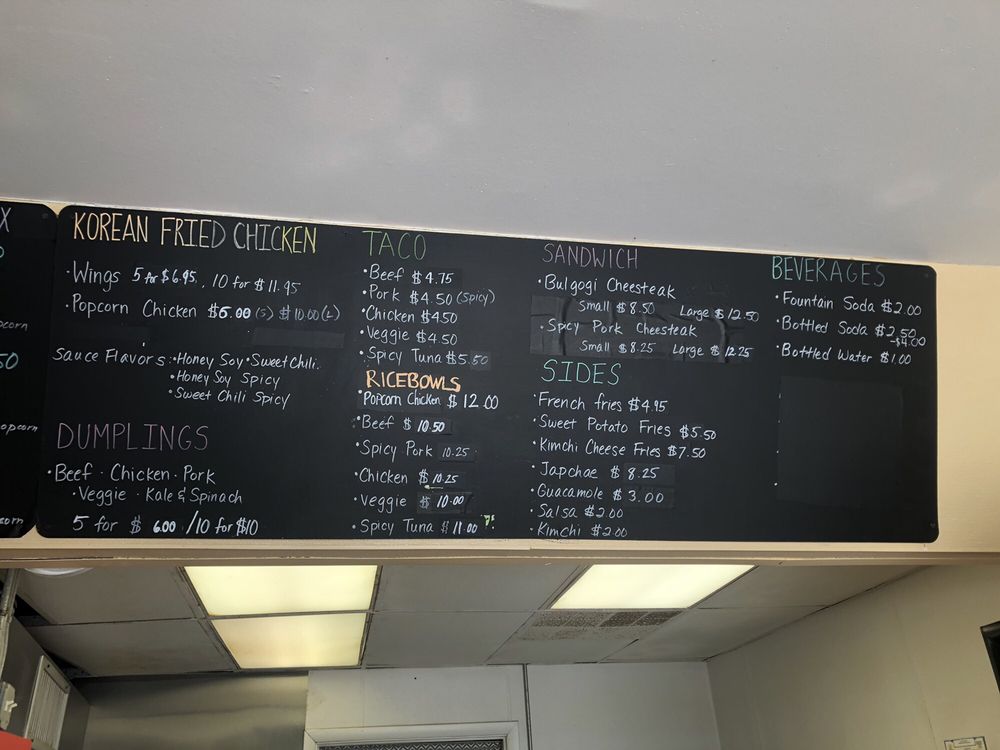 X
pcorn
50
opcorn
corn
KOREAN FRIED CHICKEN
·Wings 5 for $6.95, 10 for $11.95
·Popcorn Chicken $6.00 (S) $10.00 (L)
Sauce Flavors: ·Honey Soy ·Sweet Chili.
·Honey Soy Spicy
·Sweet Chili Spicy
DUMPLINGS
·Beef · Chicken · Pork
·Veggie · Kale & Spinach
5 for $ 6.00 /10 for $10
TACO
·Beef $4.75
·Pork $4.50 (Spicy)
·Chicken $4.50
·Veggie $4.50
·Spicy Tuna $5.50
RICEBOWLS
·Popcorn Chicken $12.00
·Beef $ 10.50
·Spicy Pork 10.25
·Chicken $ 10.25
·Veggie $ 10.00
·Spicy Tuna $11.00
SANDWICH
·Bulgogi Cheesteak
Small $8.50 Large $12.50
·Spicy Pork Cheesteak
Small $8.25 Large $12.25
SIDES
·French fries $4.95
·Sweet Potato Fries $5.50
·Kimchi Cheese Fries $7.50
·Japchae $8.25
·Guacamole $3.00
·Salsa $2.00
·Kimchi $2.00
BEVERAGES
·Fountain Soda $2.00
·Bottled Soda $2.50
-$4.00
·Bottled Water $1.00